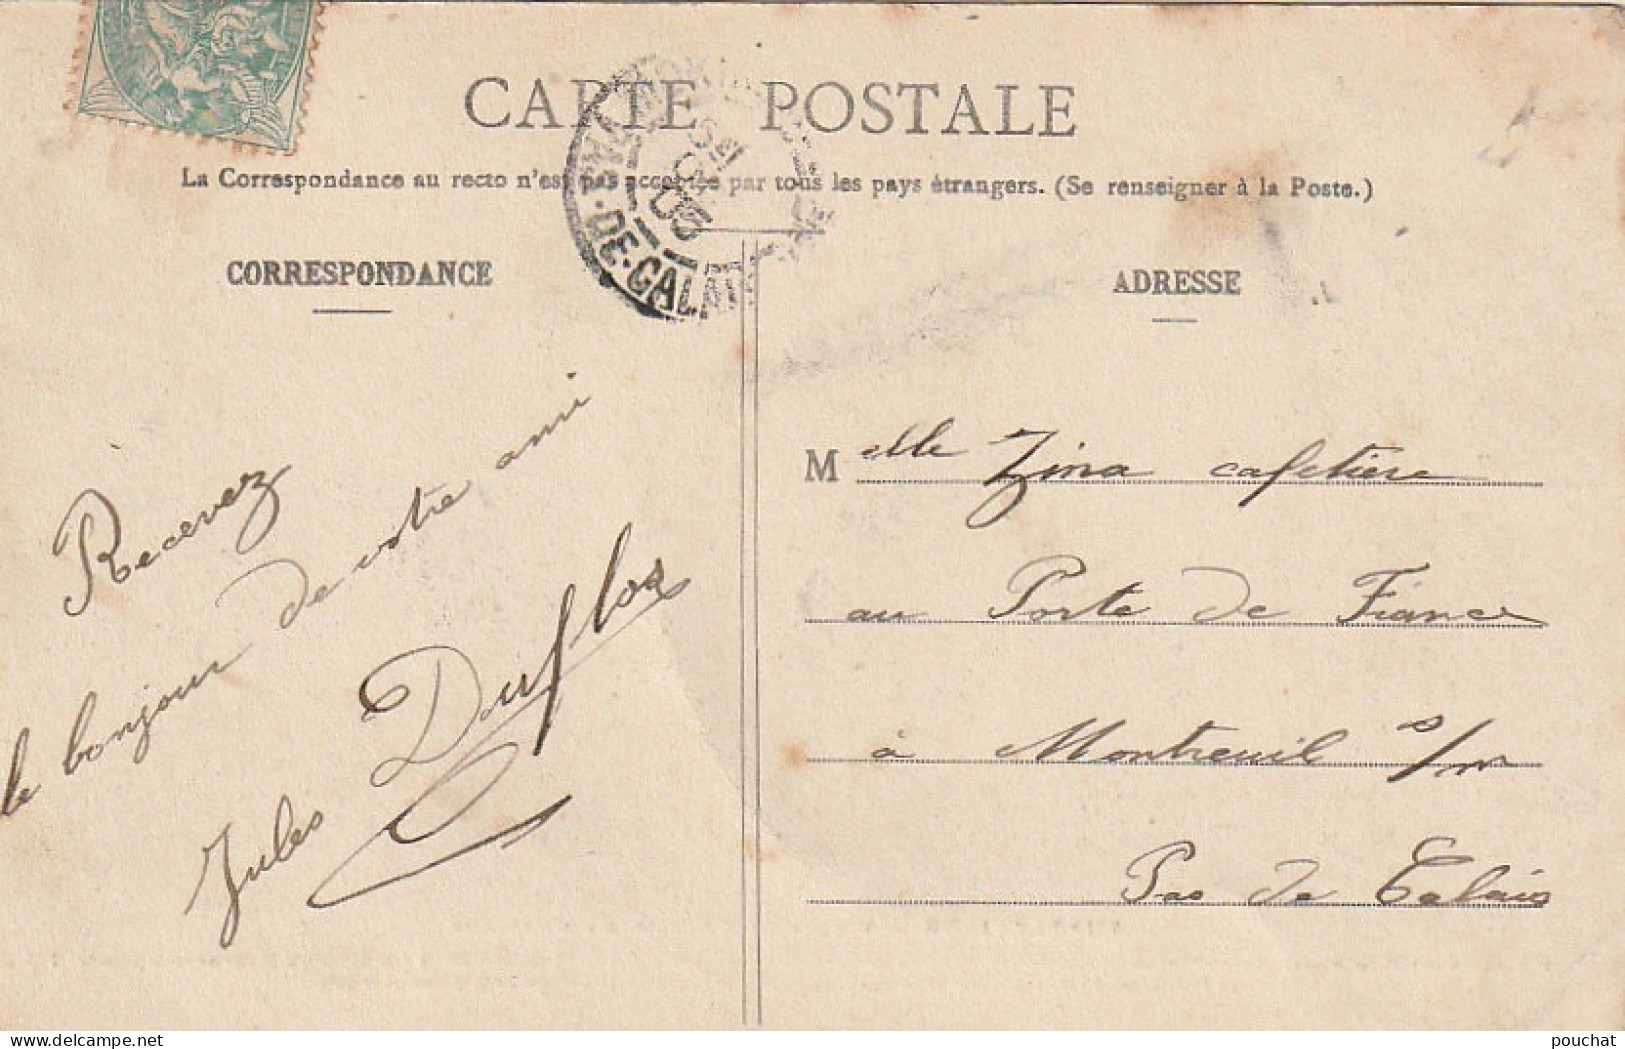 CARTE POSTALE
La Correspondance au recto n'est pas acceptée par tous les pays étrangers. (Se renseigner à la Poste.)
CORRESPONDANCE
Recevez
le bonjour de votre ami
Jules Duflos
PAS-DE-CALAIS
05
ADRESSE
Melle Zina cafetière
au Porte de France
à Montreuil s/m
Pas de Calais
www.delcampe.net
pouchat